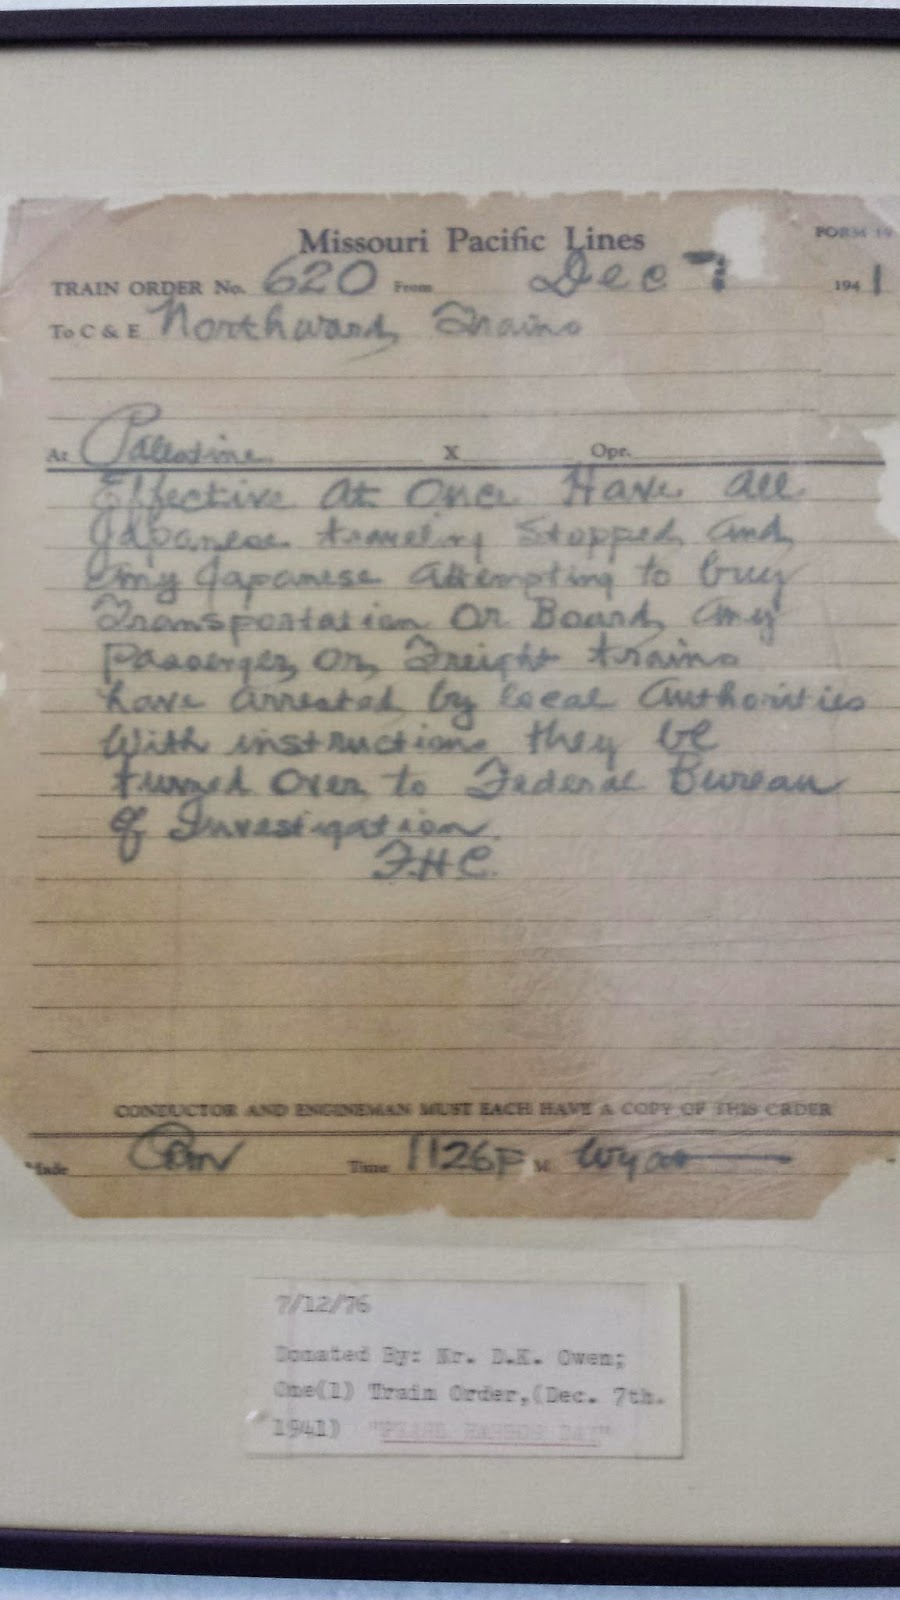 Missouri Pacific Lines
FORM 19
TRAIN ORDER No. 620 From Dec 7 1941
To C & E Northward Trains
At Palestine X Opr.
Effective At Once Have All
Japanese traveling Stopped And
Any Japanese Attempting to buy
Transportation Or Board Any
Passenger Or Freight trains
have arrested by local Authorities
With instructions they be
turned Over to Federal Bureau
Of Investigation
F.H.C.
CONDUCTOR AND ENGINEMAN MUST EACH HAVE A COPY OF THIS ORDER
Made Com Time 1126P M.
7/12/76
Donated By: Mr. D.K. Owen;
One(1) Train Order,(Dec. 7th.
1941) "PEARL HARBOR DAY"